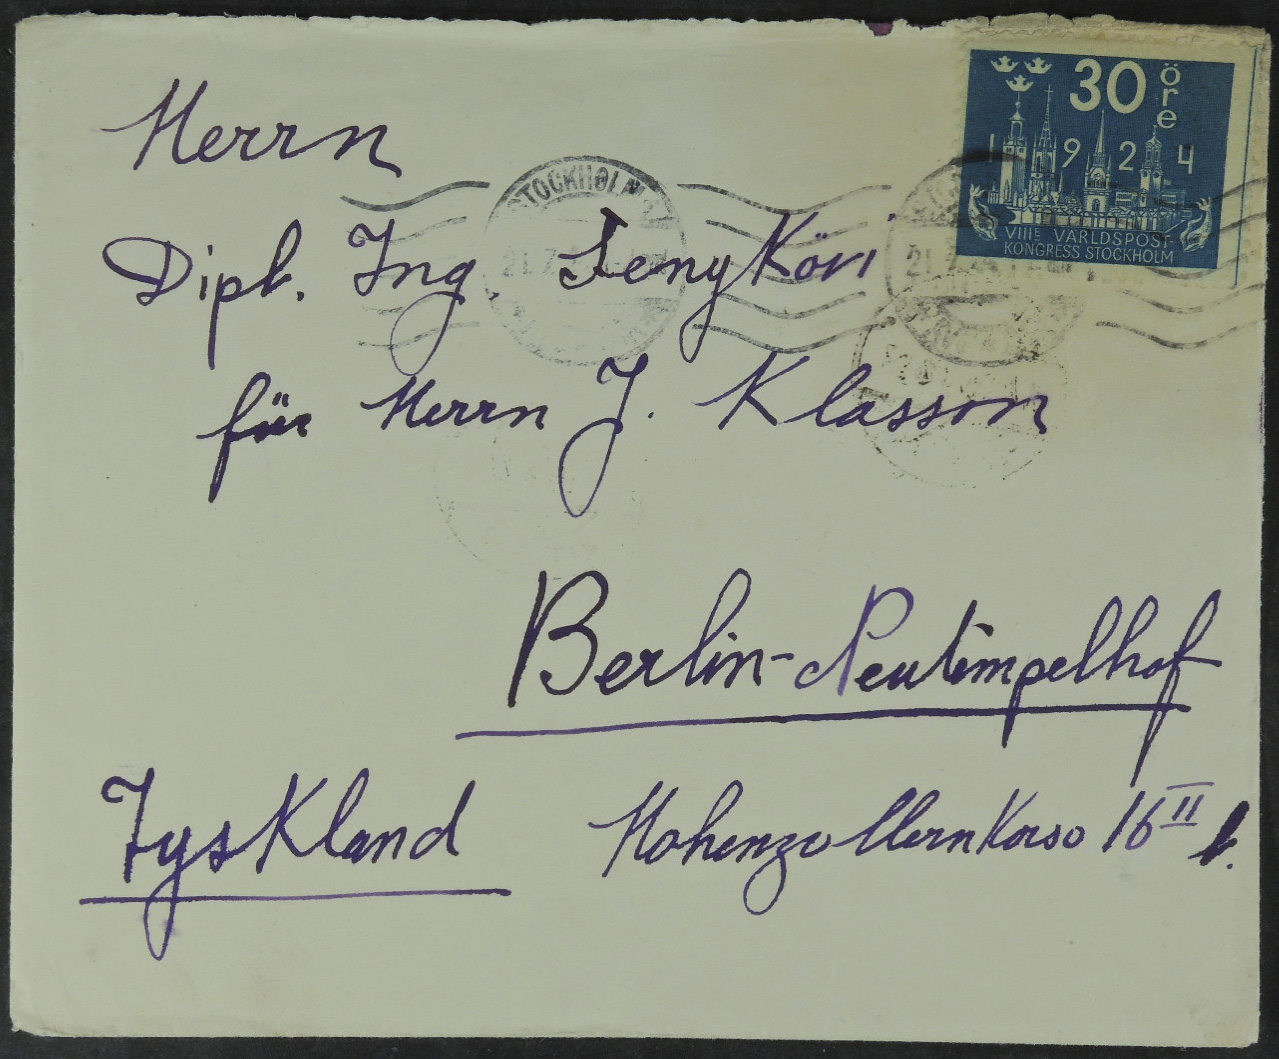 30 öre
1924
VIIIE VÄRLDSPOST-
KONGRESS STOCKHOLM
STOCKHOLM
21.7
Herrn
Dipl. Ing. Köri
für Herrn J. Klasson
Berlin-Neutempelhof
Tyskland
Hohenzollernkorso 16 II